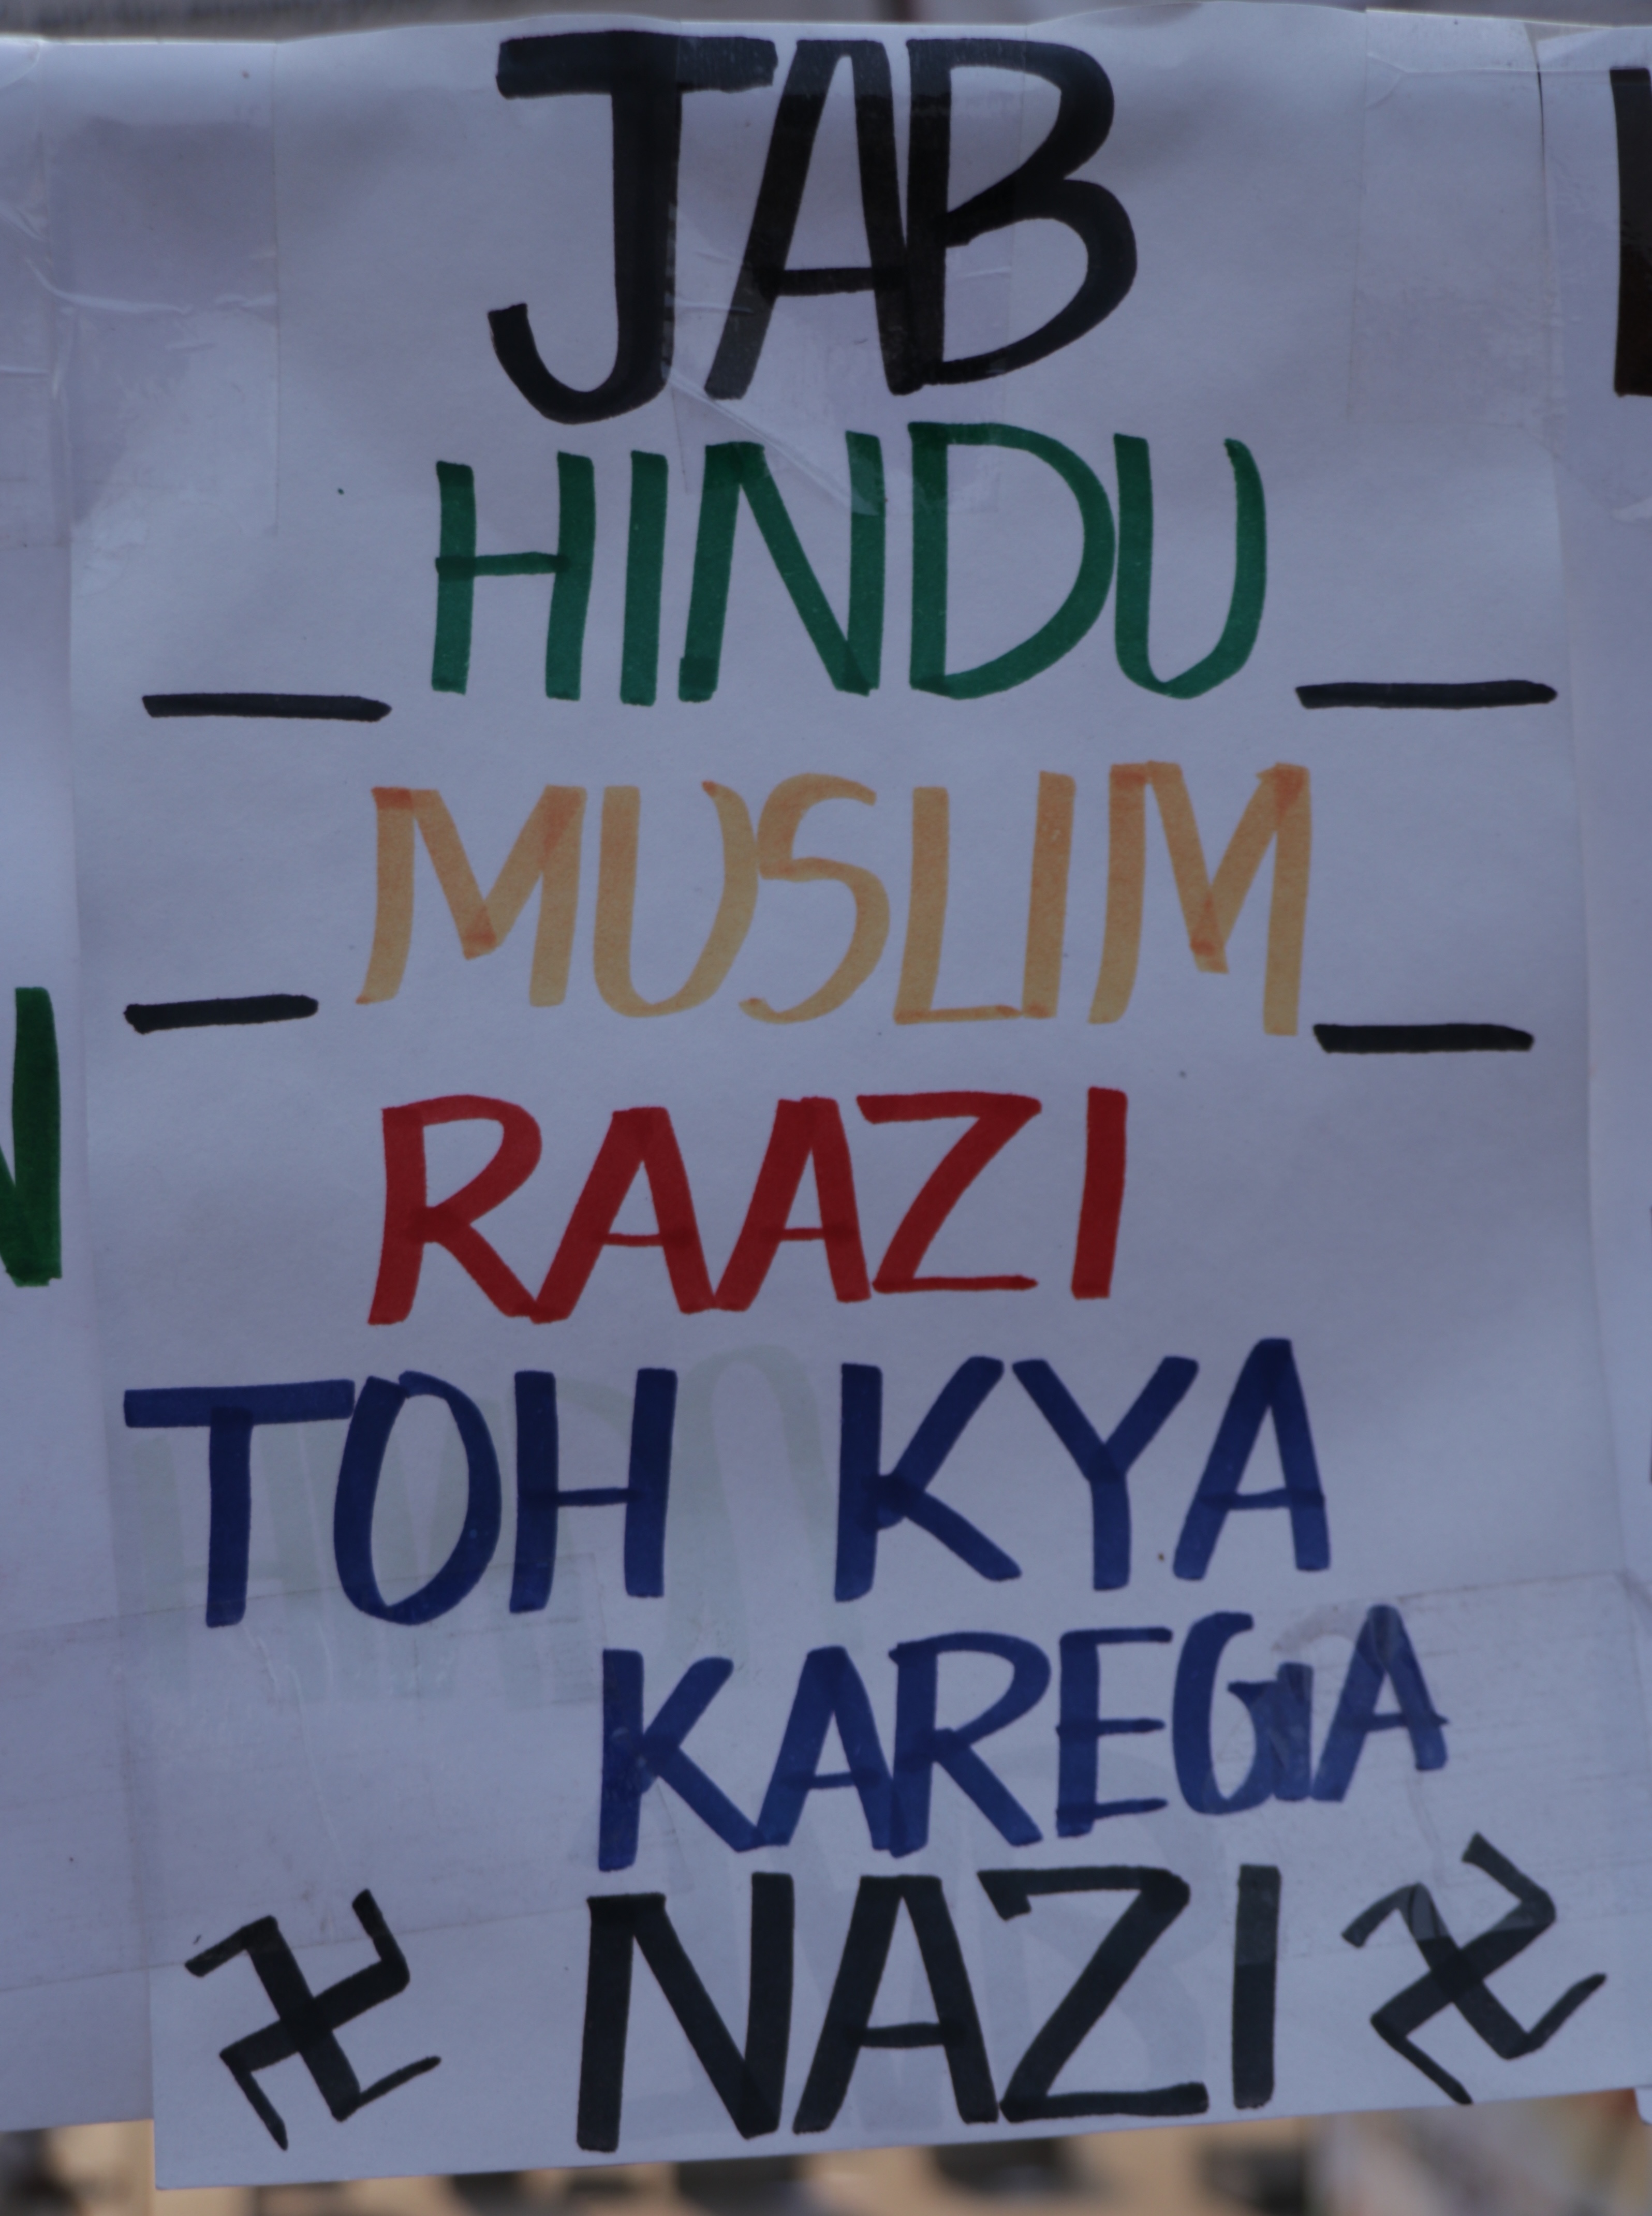 JAB
HINDU
MUSLIM
RAAZI
TOH KYA
KAREGA
卐 NAZI 卐